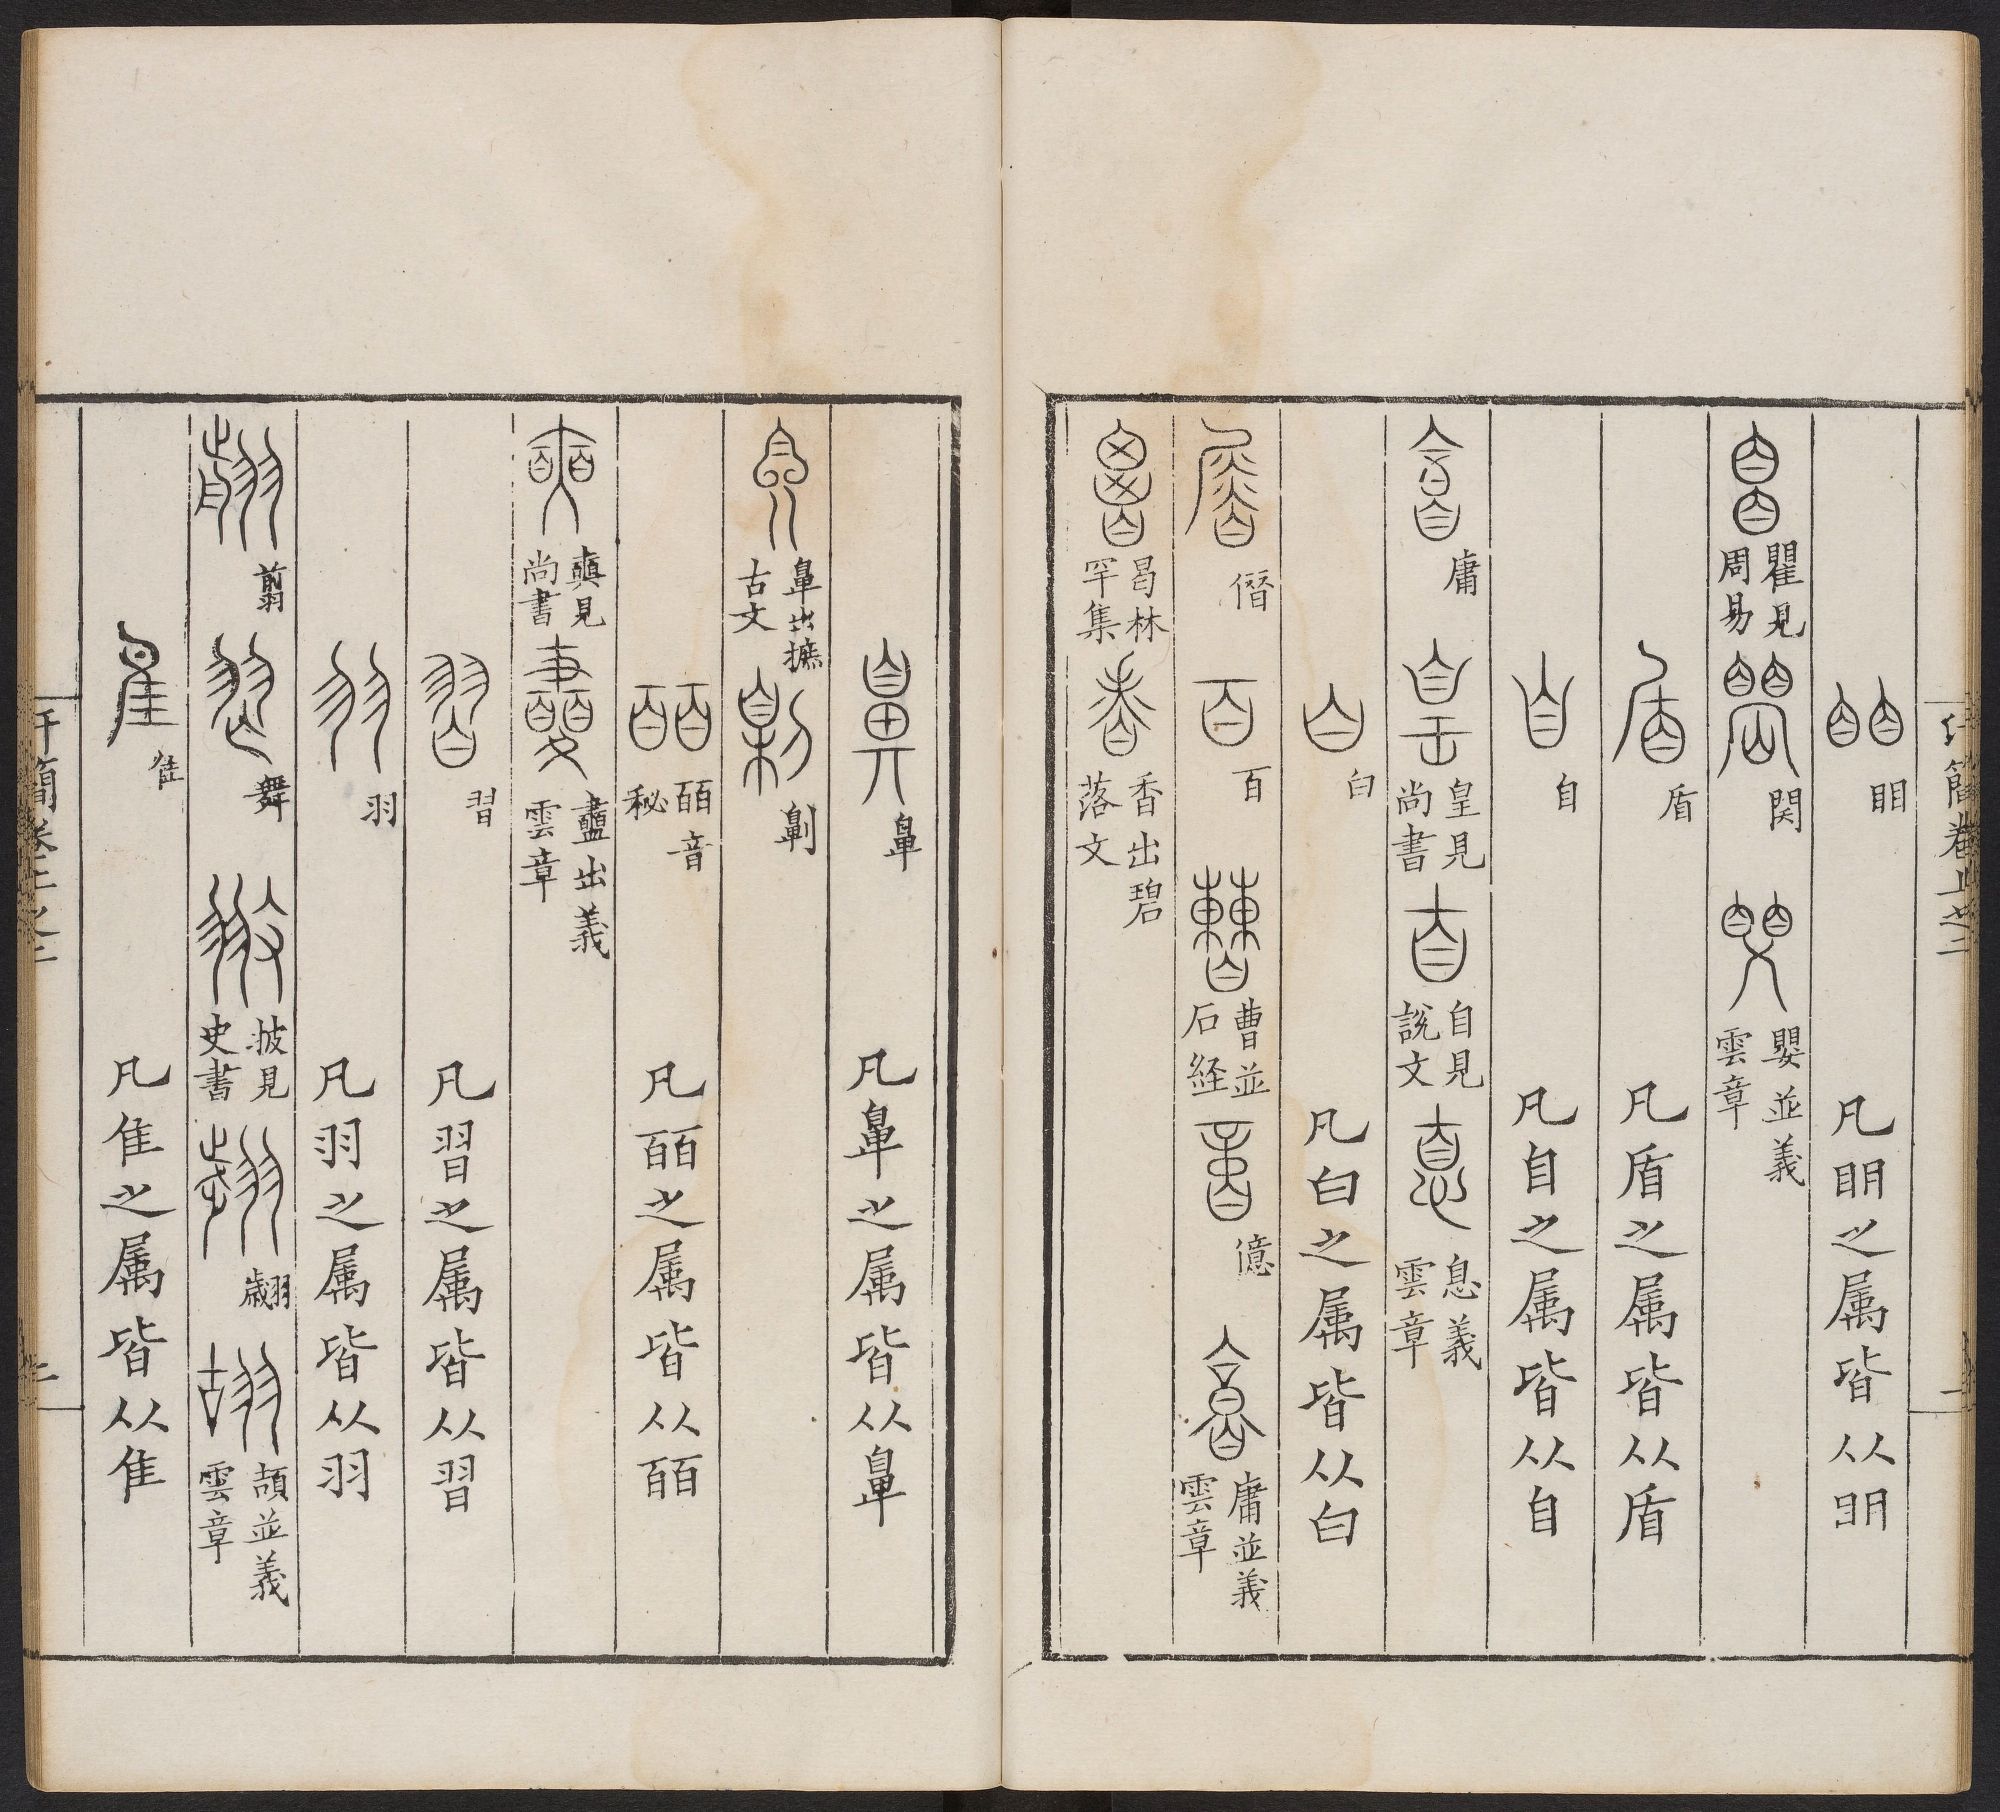 䀠 凡䀠之属皆从䀠
瞿見周易 関 嬰並義雲章
盾 凡盾之属皆从盾
自 凡自之属皆从自
庸 皇見尚書 自見説文 息義雲章
白 凡白之属皆从白
僭 百 曹並石経 億 庸並義雲章
曷林罕集 香出碧落文
鼻 凡鼻之属皆从鼻
鼻出摭古文 劓
皕音秘 凡皕之属皆从皕
尚書 衋出義雲章
習 凡習之属皆从習
羽 凡羽之属皆从羽
翦 舞 披見史書 翽 頡並義雲章
隹 凡隹之属皆从隹
汗簡卷上之二 二